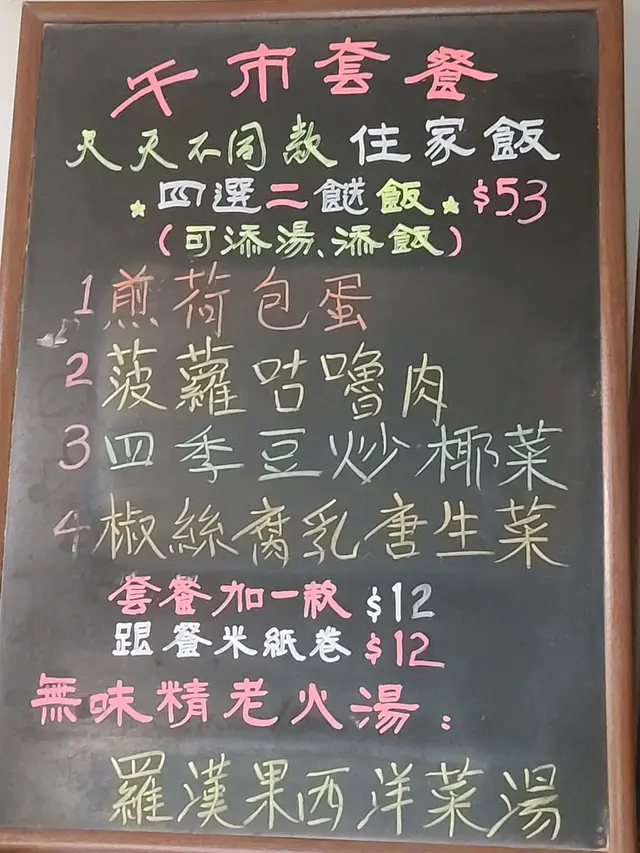 午市套餐
天天不同款住家飯
四選二餸飯 $53
(可添湯、添飯)
1 煎荷包蛋
2 菠蘿咕嚕肉
3 四季豆炒椰菜
4 椒絲腐乳唐生菜
套餐加一款 $12
跟餐米紙卷 $12
無味精老火湯：
羅漢果西洋菜湯